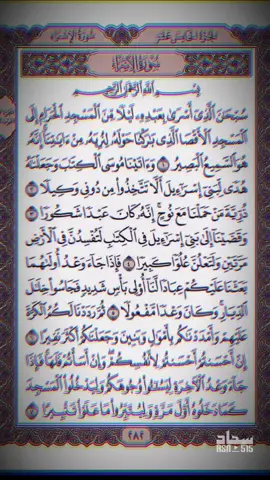 الجزء الخامس عشر سورة الإسراء
سورة الإسراء
بِسْمِ اللَّهِ الرَّحْمَٰنِ الرَّحِيمِ
سُبْحَٰنَ الَّذِي أَسْرَىٰ بِعَبْدِهِ لَيْلًا مِّنَ الْمَسْجِدِ الْحَرَامِ إِلَى
الْمَسْجِدِ الْأَقْصَا الَّذِي بَٰرَكْنَا حَوْلَهُ لِنُرِيَهُ مِنْ ءَايَٰتِنَا إِنَّهُ
هُوَ السَّمِيعُ الْبَصِيرُ ١ وَءَاتَيْنَا مُوسَى الْكِتَٰبَ وَجَعَلْنَٰهُ
هُدًى لِّبَنِي إِسْرَٰءِيلَ أَلَّا تَتَّخِذُوا مِن دُونِي وَكِيلًا ٢
ذُرِّيَّةَ مَنْ حَمَلْنَا مَعَ نُوحٍ إِنَّهُ كَانَ عَبْدًا شَكُورًا ٣
وَقَضَيْنَا إِلَىٰ بَنِي إِسْرَٰءِيلَ فِي الْكِتَٰبِ لَتُفْسِدُنَّ فِي الْأَرْضِ
مَرَّتَيْنِ وَلَتَعْلُنَّ عُلُوًّا كَبِيرًا ٤ فَإِذَا جَاءَ وَعْدُ أُولَىٰهُمَا
بَعَثْنَا عَلَيْكُمْ عِبَادًا لَّنَا أُولِي بَأْسٍ شَدِيدٍ فَجَاسُوا خِلَٰلَ
الدِّيَارِ وَكَانَ وَعْدًا مَّفْعُولًا ٥ ثُمَّ رَدَدْنَا لَكُمُ الْكَرَّةَ
عَلَيْهِمْ وَأَمْدَدْنَٰكُم بِأَمْوَٰلٍ وَبَنِينَ وَجَعَلْنَٰكُمْ أَكْثَرَ نَفِيرًا ٦
إِنْ أَحْسَنتُمْ أَحْسَنتُمْ لِأَنفُسِكُمْ وَإِنْ أَسَأْتُمْ فَلَهَا فَإِذَا
جَاءَ وَعْدُ الْءَاخِرَةِ لِيَسُءُوا وُجُوهَكُمْ وَلِيَدْخُلُوا الْمَسْجِدَ
كَمَا دَخَلُوهُ أَوَّلَ مَرَّةٍ وَلِيُتَبِّرُوا مَا عَلَوْا تَتْبِيرًا ٧
٢٨٢
سجاد